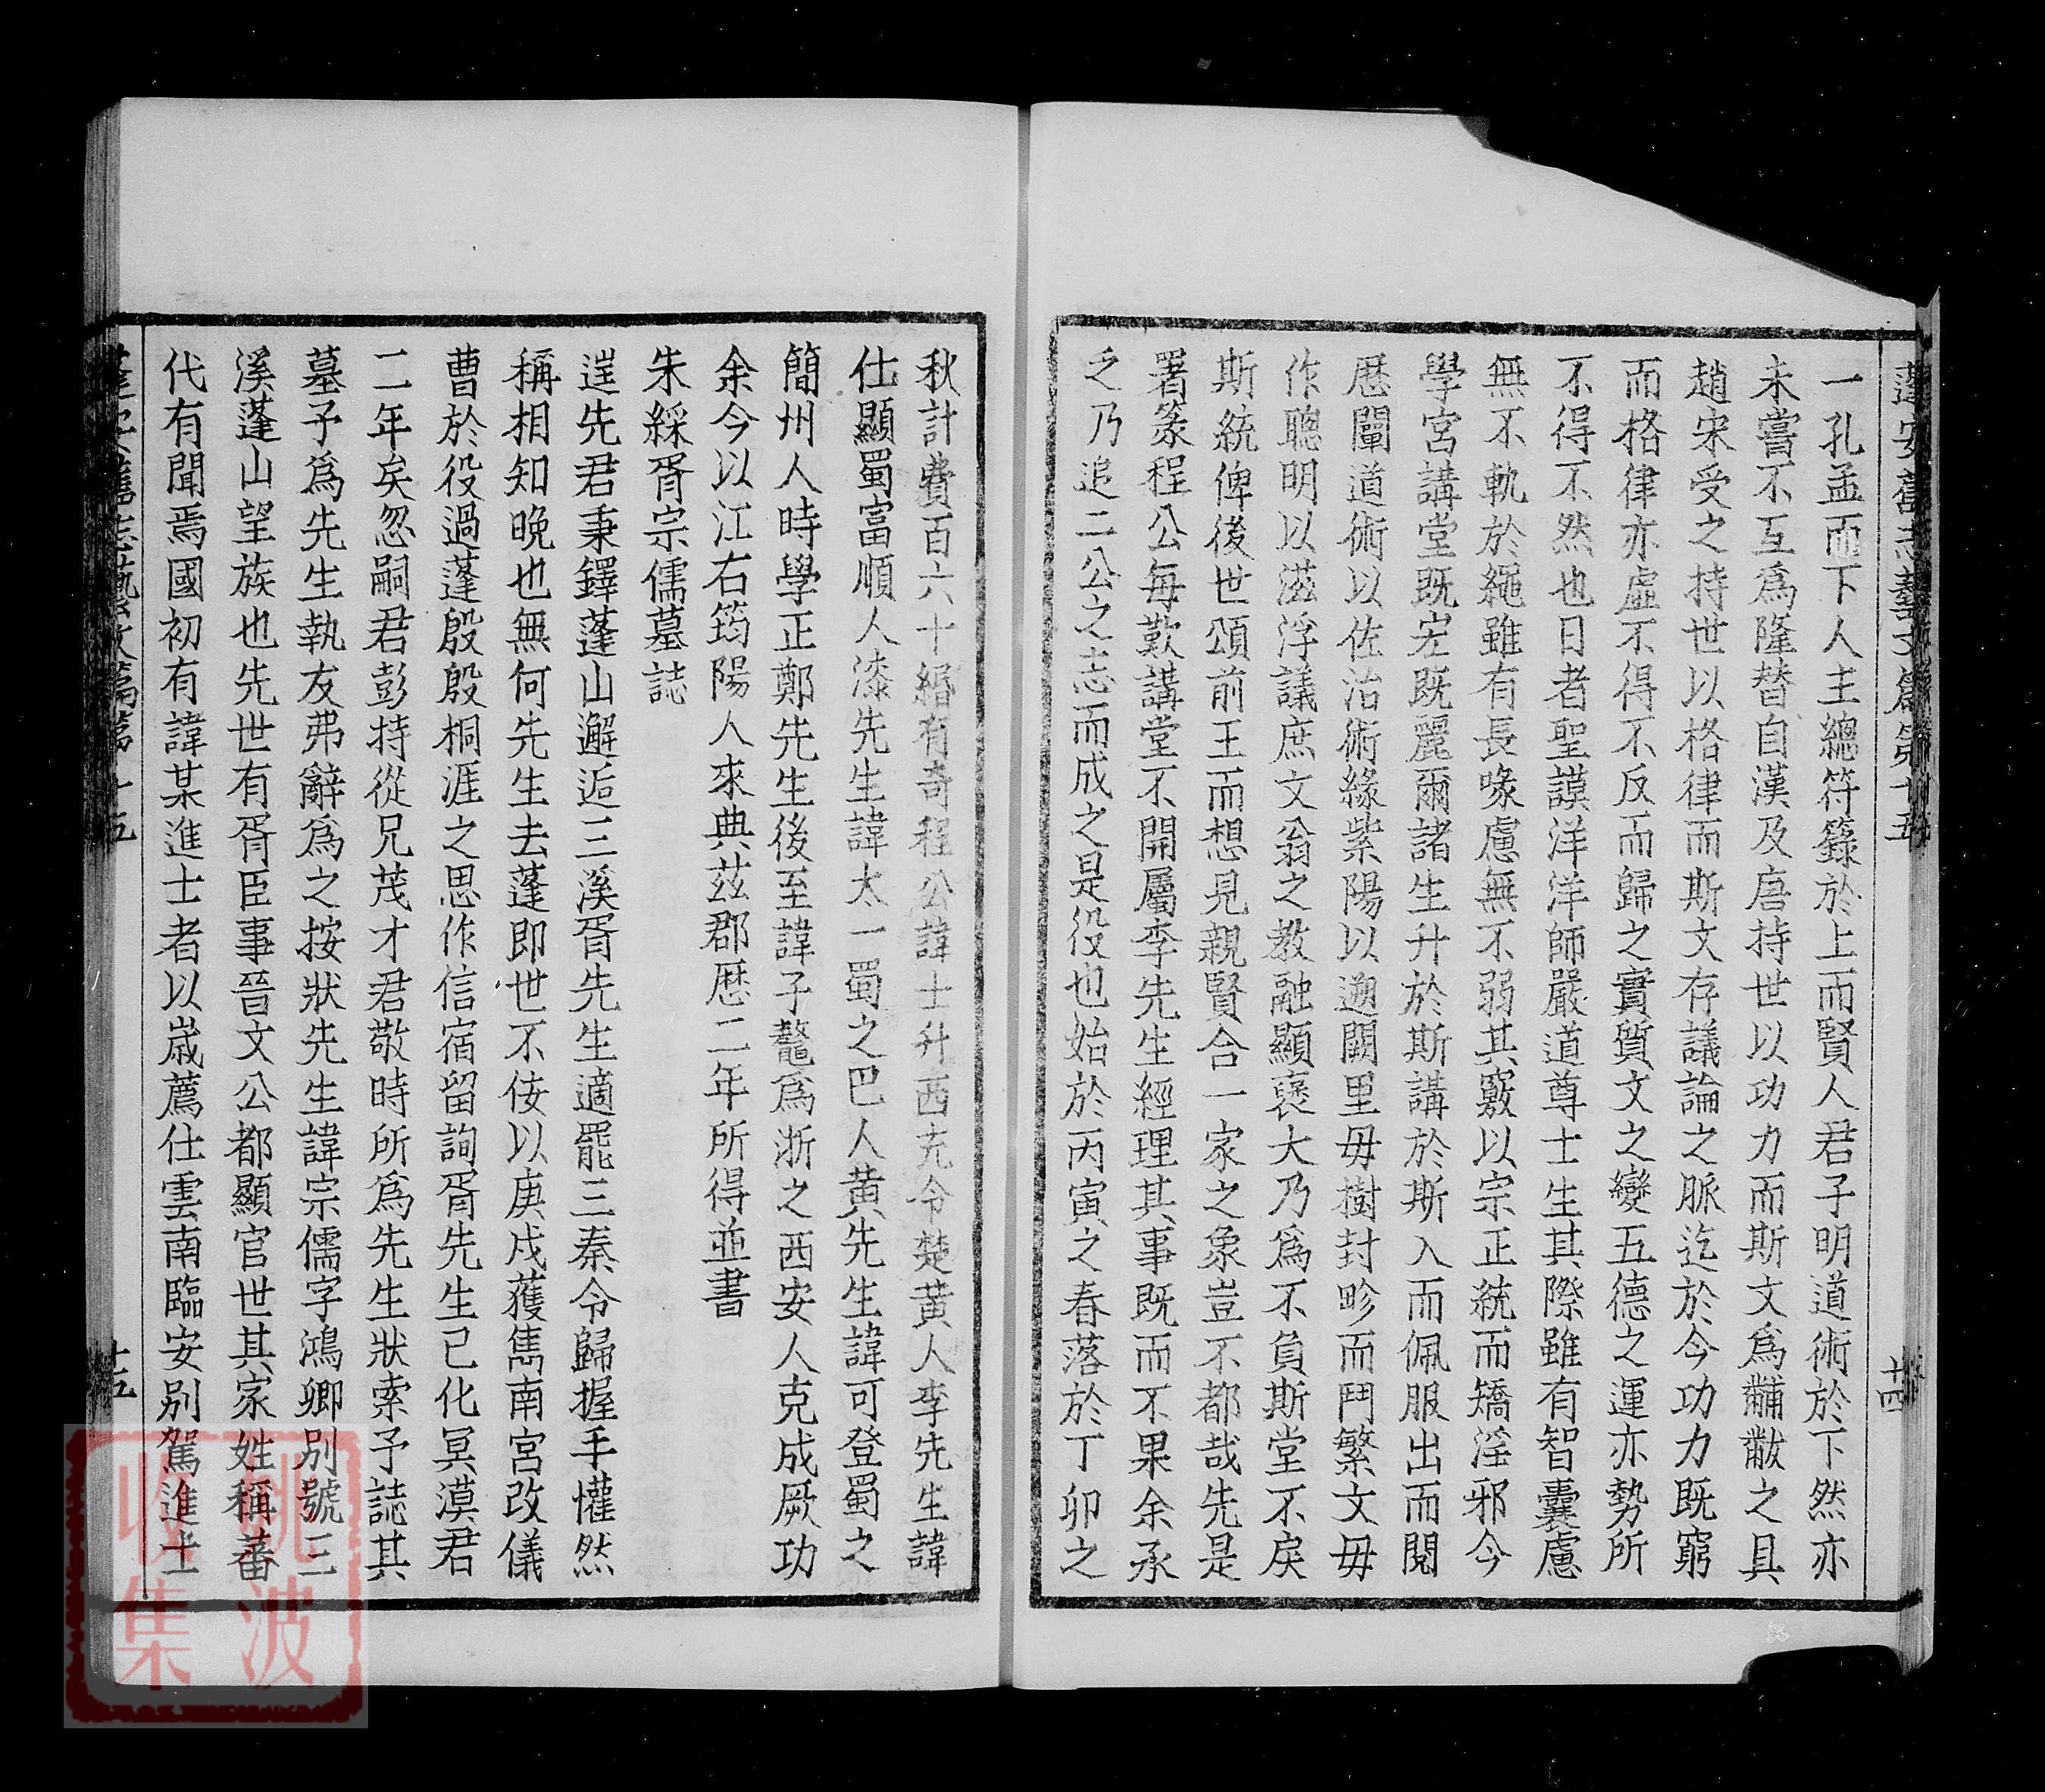 蓬安舊志藝文篇第十五
十四
一孔孟而下人主總符籙於上而賢人君子明道術於下然亦
未嘗不互爲隆替自漢及唐持世以功力而斯文爲黼黻之具
趙宋受之持世以格律而斯文存議論之脈迄於今功力既窮
而格律亦虛不得不反而歸之實質文之變五德之運亦勢所
不得不然也日者聖謨洋洋師嚴道尊士生其際雖有智囊慮
無不軌於繩雖有長喙慮無不弱其竅以宗正統而矯淫邪今
學宮講堂既宏既麗爾諸生升於斯講於斯入而佩服出而閱
歷闡道術以佐治術緣紫陽以遡闕里毋樹封畛而鬥繁文毋
作聰明以滋浮議庶文翁之教融顯褒大乃爲不負斯堂不戾
斯統俾後世頌前王而想見親賢合一家之象豈不都哉先是
署篆程公每歎講堂不開屬李先生經理其事既而不果余承
乏乃追二公之志而成之是役也始於丙寅之春落於丁卯之
秋計費百六十緡有奇程公諱士升西充令楚黃人李先生諱
仕顯蜀富順人漆先生諱太一蜀之巴人黃先生諱可登蜀之
簡州人時學正鄭先生後至諱子鼇爲浙之西安人克成厥功
余今以江右筠陽人來典茲郡歷二年所得並書
朱綵胥宗儒墓誌
逞先君秉鐸蓬山邂逅三溪胥先生適罷三秦令歸握手懽然
稱相知晚也無何先生去蓬即世不佞以庚戌獲雋南宮改儀
曹於役過蓬殷殷桐涯之思作信宿留詢胥先生已化冥漠君
二年矣忽嗣君彭持從兄茂才君敬時所爲先生狀索予誌其
墓予爲先生執友弗辭爲之按狀先生諱宗儒字鴻卿別號三
溪蓬山望族也先世有胥臣事晉文公都顯官世其家姓稱蕃
代有聞焉國初有諱某進士者以歲薦仕雲南臨安別駕進士
蓬安舊志藝文篇第十五
十五
姚波
收集